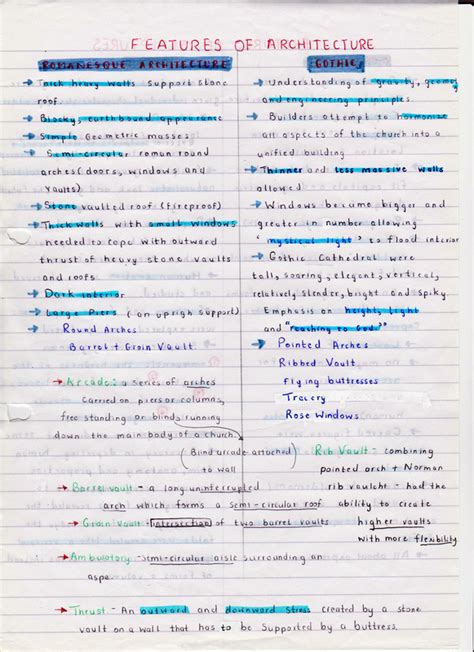 FEATURES OF ARCHITECTURE
ROMANESQUE ARCHITECTURE
→ Thick heavy walls support stone
roof.
→ Blocky, earthbound appearance
→ Simple Geometric masses
→ Semi-circular roman round
arches (doors, windows and
vaults)
→ Stone vaulted roof (fireproof)
→ Thick walls with small windows
needed to cope with outward
thrust of heavy stone vaults
and roofs.
→ Dark interior
→ Large Piers (an uprigh support)
Round Arches
Barrel + Groin Vault
GOTHIC
→ Understanding of gravity, geomey
and engineering principles
→ Builders attempt to harmonize
all aspects of the church into a
unified building
→ Thinner and less massive walls
allowed
→ Windows become bigger and
greater in number allowing
'mystical light' to flood interior
→ Gothic Cathedral were
tall, soaring, elegant, vertical,
relatively slender, bright and spiky.
Emphasis on height, light
and "reaching to God"
→ Pointed Arches
Ribbed Vault
flying buttresses
Tracery
Rose Windows
→ Arcade: a series of arches
carried on piers or columns,
free standing or blind, running
down the main body of a church.
(Blind arcade attached
to wall)
Rib Vault - combining
pointed arch + Norman
rib vault - had the
ability to create
higher vaults
with more flexibility
→ Barrel vault - a long uninterrupted
arch which forms a semi-circular roof
→ Groin Vault - Intersection of two barrel vaults
→ Ambulatory - semi-circular aisle surrounding an
aspe.
→ Thrust - An outward and downward stress created by a stone
vault on a wall that has to be supported by a buttress.